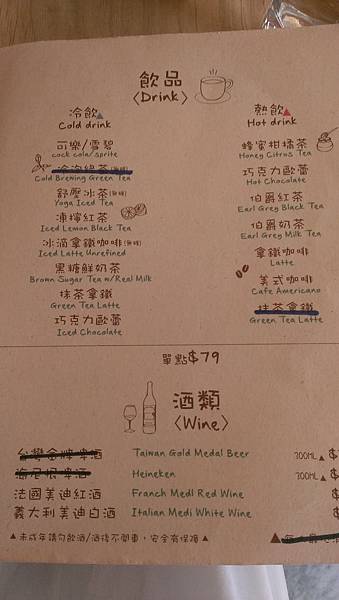 飲品
〈Drink〉
冷飲
Cold drink
可樂/雪碧
cock cola/sprite
冷泡綠茶(無糖)
Cold Brewing Green Tea
舒壓冰茶(無糖)
Yoga Iced Tea
凍檸紅茶
Iced Lemon Black Tea
冰滴拿鐵咖啡(無糖)
Iced Latte Unrefined
黑糖鮮奶茶
Brown Sugar Tea w/Real Milk
抹茶拿鐵
Green Tea Latte
巧克力歐蕾
Iced Chocolate
熱飲
Hot drink
蜂蜜柑橘茶
Honey Citrus Tea
巧克力歐蕾
Hot Chocolate
伯爵紅茶
Earl Grey Black Tea
伯爵奶茶
Earl Grey Milk Tea
拿鐵咖啡
Latte
美式咖啡
Cafe Americano
抹茶拿鐵
Green Tea Latte
單點$79
酒類
〈Wine〉
台灣金牌啤酒 Taiwan Gold Medal Beer 300ML▲ $
海尼根啤酒 Heineken 300ML▲ $
法國美迪紅酒 Franch Medl Red Wine $
義大利美迪白酒 Italian Medi White Wine $
▲未成年請勿飲酒/酒後不開車，安全有保障▲